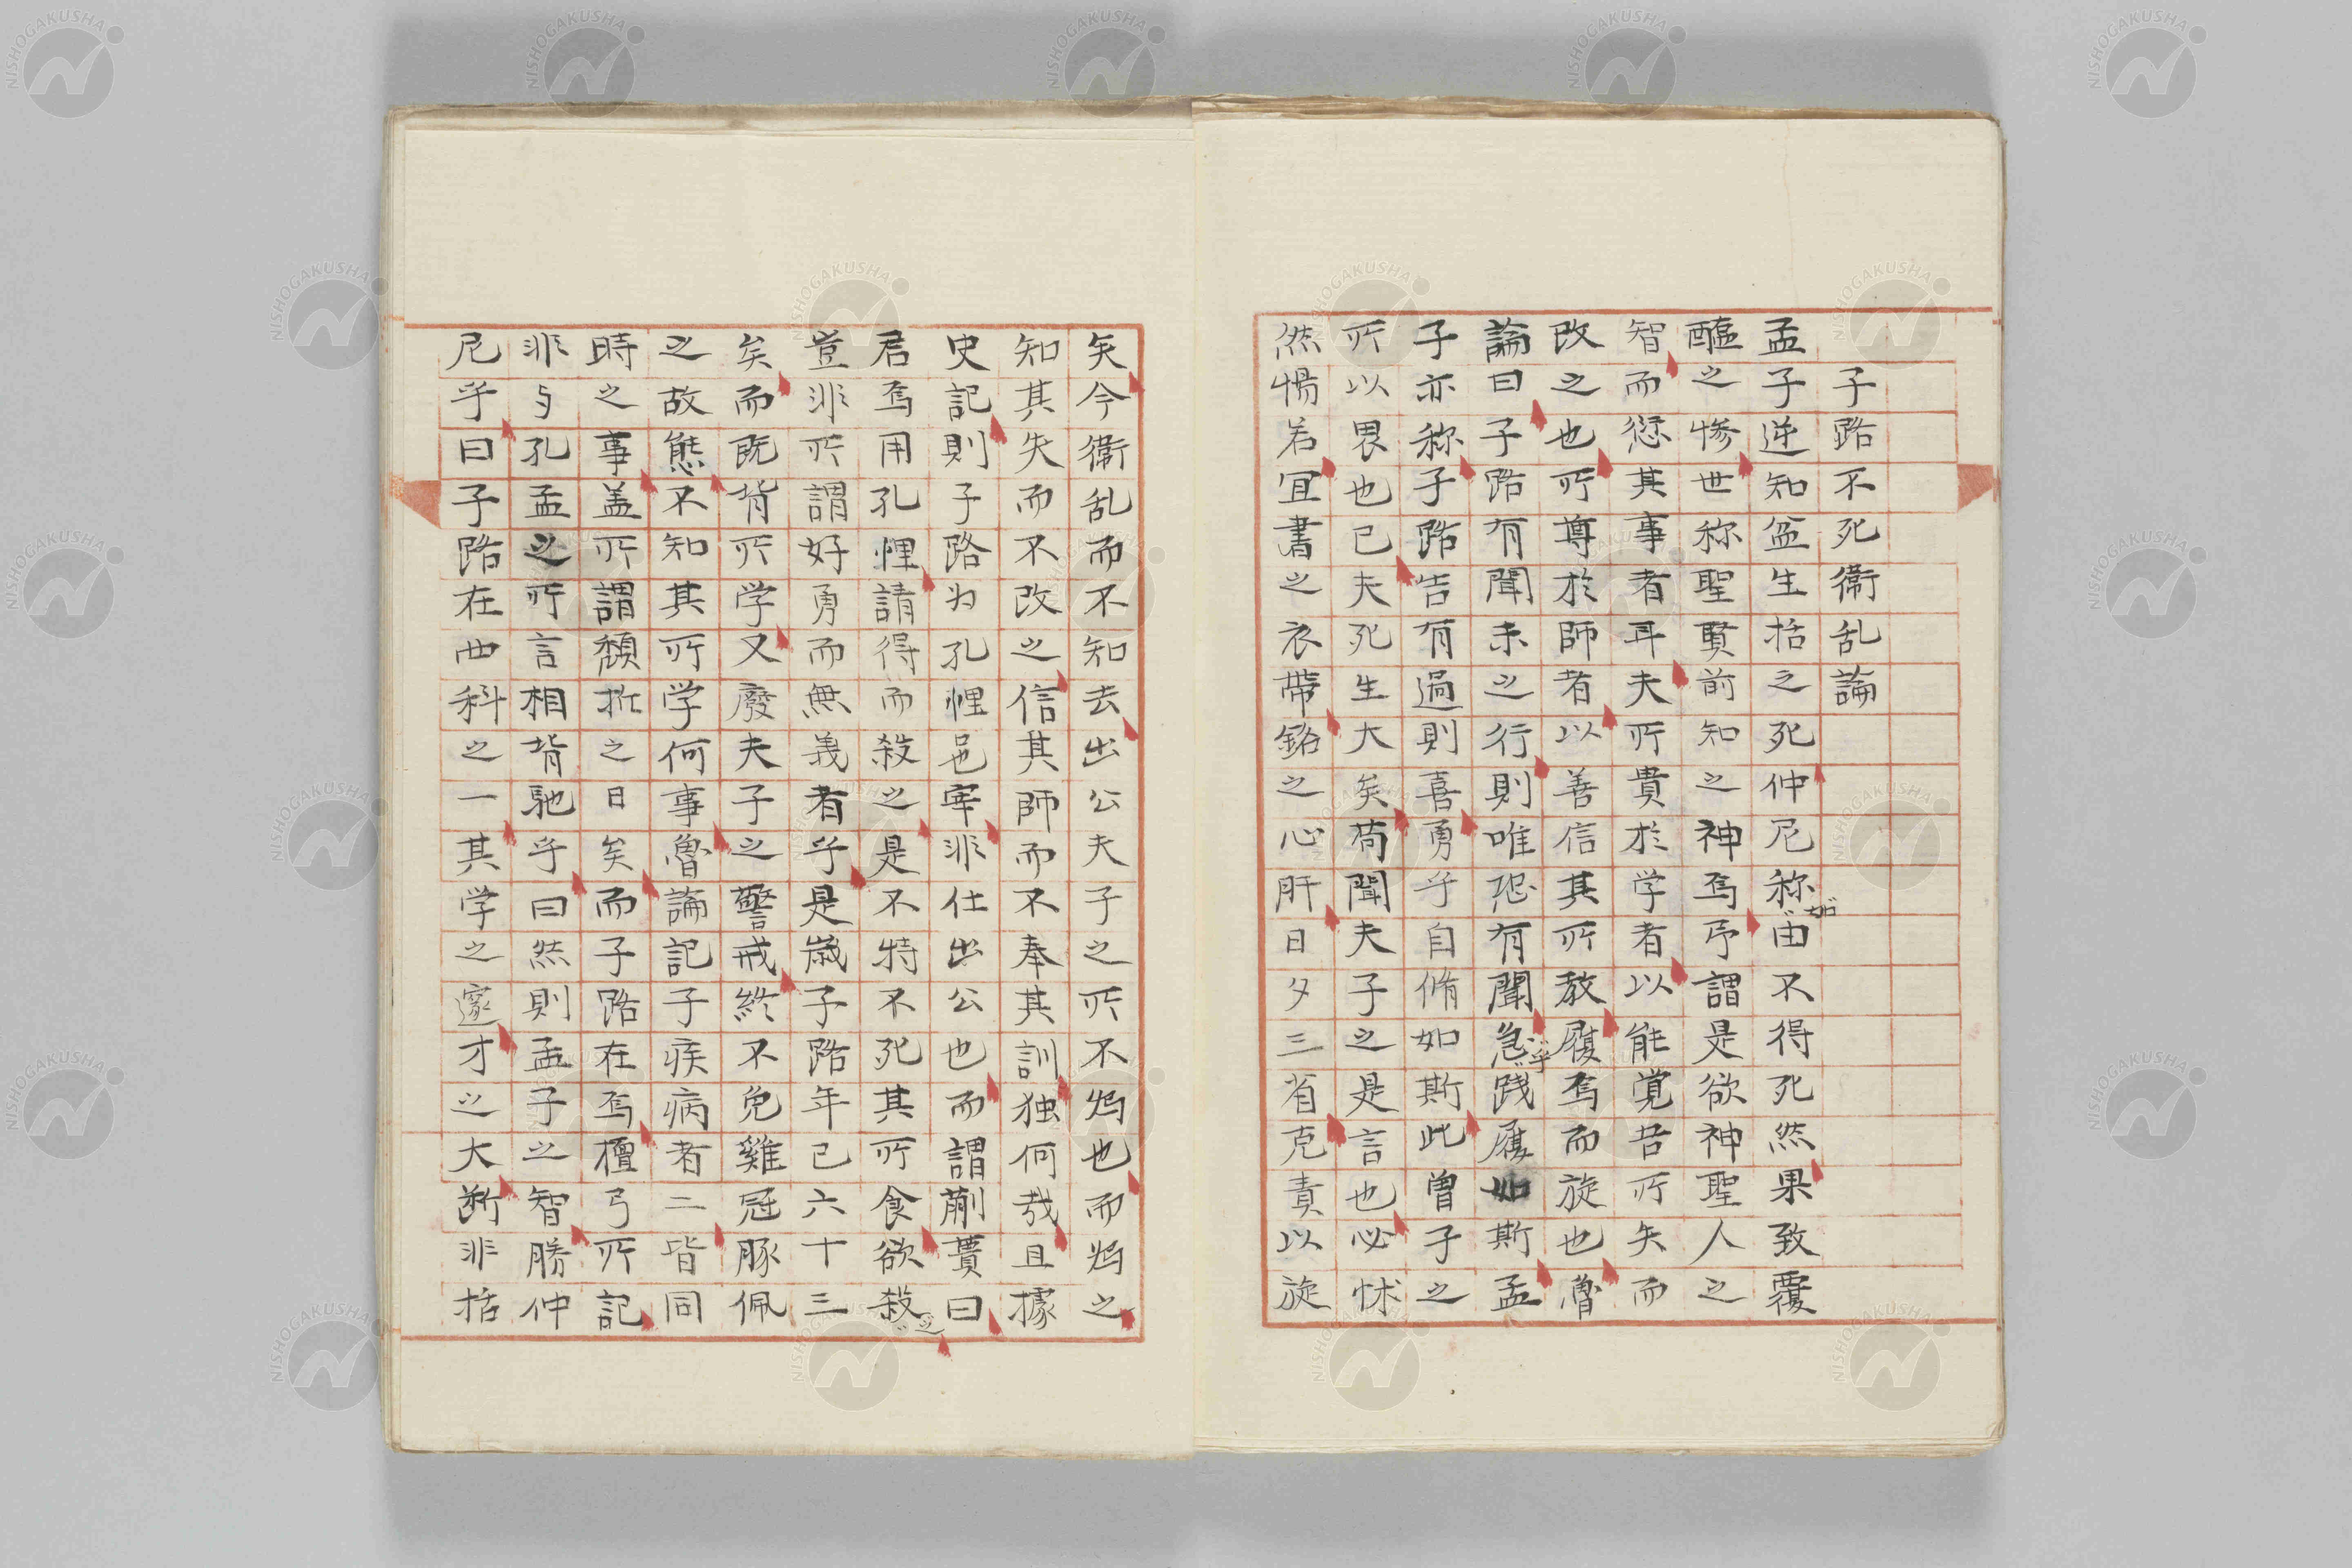 子路不死衛乱論
孟子逆知盆生括之死仲尼称由不得死然果致覆
如
醢之惨世称聖賢前知之神焉予謂是欲神聖人之
智而愆其事者耳夫所貴於学者以能覚昔所失而
改之也所尊於師者以善信其所教履焉而旋也魯
論曰子路有聞未之行則唯恐有聞急践履如斯孟
乎
子亦称子路告有過則喜勇乎自脩如斯此曽子之
所以畏也已夫死生大矣苟聞夫子之是言也必怵
然惕若宜書之衣帶銘之心肝日夕三省克責以旋
矣今衛乱而不知去出公夫子之所不為也而為之
知其失而不改之信其師而不奉其訓独何哉且據
史記則子路为孔悝邑宰非仕出公也而謂蒯聵曰
君焉用孔悝請得而殺之是不特不死其所食欲殺
之
豈非所謂好勇而無義者乎是歳子路年已六十三
矣而既背所学又廢夫子之警戒終不免雞冠豚佩
之故態不知其所学何事魯論記子疾病者二皆同
時之事盖所謂頽折之日矣而子路在焉檀弓所記
非与孔孟之所言相背馳乎曰然則孟子之智勝仲
尼乎曰子路在四科之一其学之邃才之大断非括
NISHOGAKUSHA